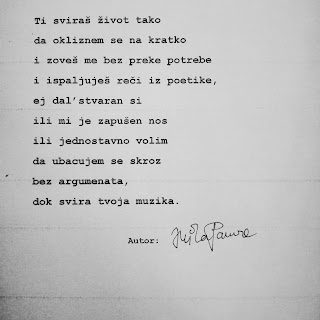 Ti sviraš život tako
da okliznem se na kratko
i zoveš me bez preke potrebe
i ispaljuješ reči iz poetike,
ej dal'stvaran si
ili mi je zapušen nos
ili jednostavno volim
da ubacujem se skroz
bez argumenata,
dok svira tvoja muzika.
Autor: